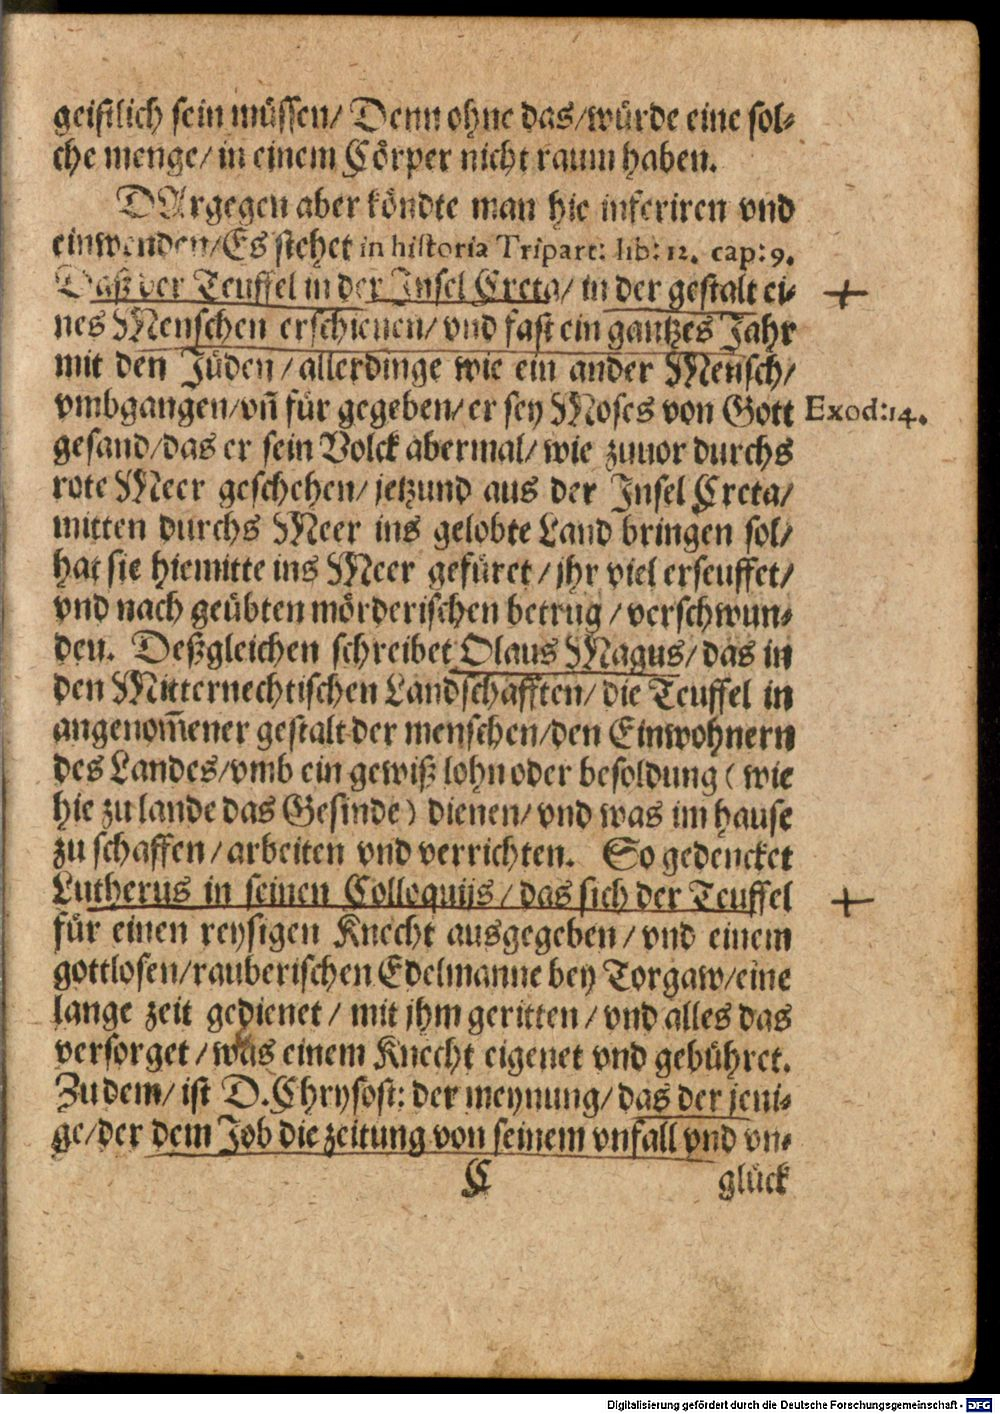 geistlich sein müssen/ Denn ohne das/würde eine sol-
che menge/ in einem Cörper nicht raum haben.
DArgegen aber köndte man hie inferiren vnd
einwenden/Es stehet in historia Tripart: lib: 12. cap: 9.
Daß der Teuffel in der Insel Creta/ in der gestalt ei-
nes Menschen erschienen/ vnd fast ein gantzes Jahr
mit den Jüden/ allerdinge wie ein ander Mensch/
vmbgangen/vñ für gegeben/ er sey Moses von Gott Exod: 14.
gesand/das er sein Volck abermal/ wie zuuor durchs
rote Meer geschehen/ jetzund aus der Insel Creta/
mitten durchs Meer ins gelobte Land bringen sol/
hat sie hiemitte ins Meer gefüret/ jhr viel erseuffet/
vnd nach geübten mörderischen betrug/ verschwun-
den. Deßgleichen schreibet Olaus Magus/ das in
den Mitternechtischen Landschafften/ die Teuffel in
angenom̃ener gestalt der menschen/den Einwohnern
des Landes/vmb ein gewiß lohn oder besoldung (wie
hie zu lande das Gesinde) dienen/ vnd was im hause
zu schaffen/ arbeiten vnd verrichten. So gedencket
Lutherus in seinen Colloquijs/ das sich der Teuffel
für einen reysigen Knecht ausgegeben/ vnd einem
gottlosen/rauberischen Edelmanne bey Torgaw/eine
lange zeit gedienet/ mit jhm geritten/ vnd alles das
versorget/ was einem Knecht eigenet vnd gebühret.
Zu dem/ ist D. Chrysost: der meynung/ das der jeni-
ge/der dem Job die zeitung von seinem vnfall vnd vn-
C glück
Digitalisierung gefördert durch die Deutsche Forschungsgemeinschaft - DFG